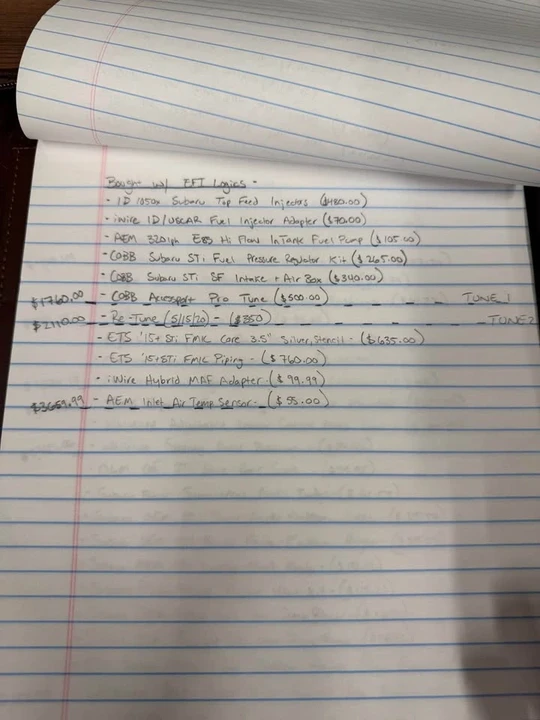 Bought w/ EFI Logics -
- ID 1050x Subaru Top Feed Injectors ($480.00)
- iWire ID/USCAR Fuel Injector Adapter ($70.00)
- AEM 320lph E85 Hi Flow InTank Fuel Pump ($105.00)
- COBB Subaru STi Fuel Pressure Regulator Kit ($265.00)
- COBB Subaru STi SF Intake + Air Box ($340.00)
$1760.00 - COBB Accessport Pro Tune ($500.00) TUNE 1
$2110.00 - Re-Tune (5/15/20) - ($350) TUNE 2
- ETS '15+ STi FMIC Core 3.5" Silver, Stencil - ($635.00)
- ETS '15+STi FMIC Piping - ($760.00)
- iWire Hybrid MAF Adapter ($99.99)
$3659.99 - AEM Inlet Air Temp Sensor - ($55.00)